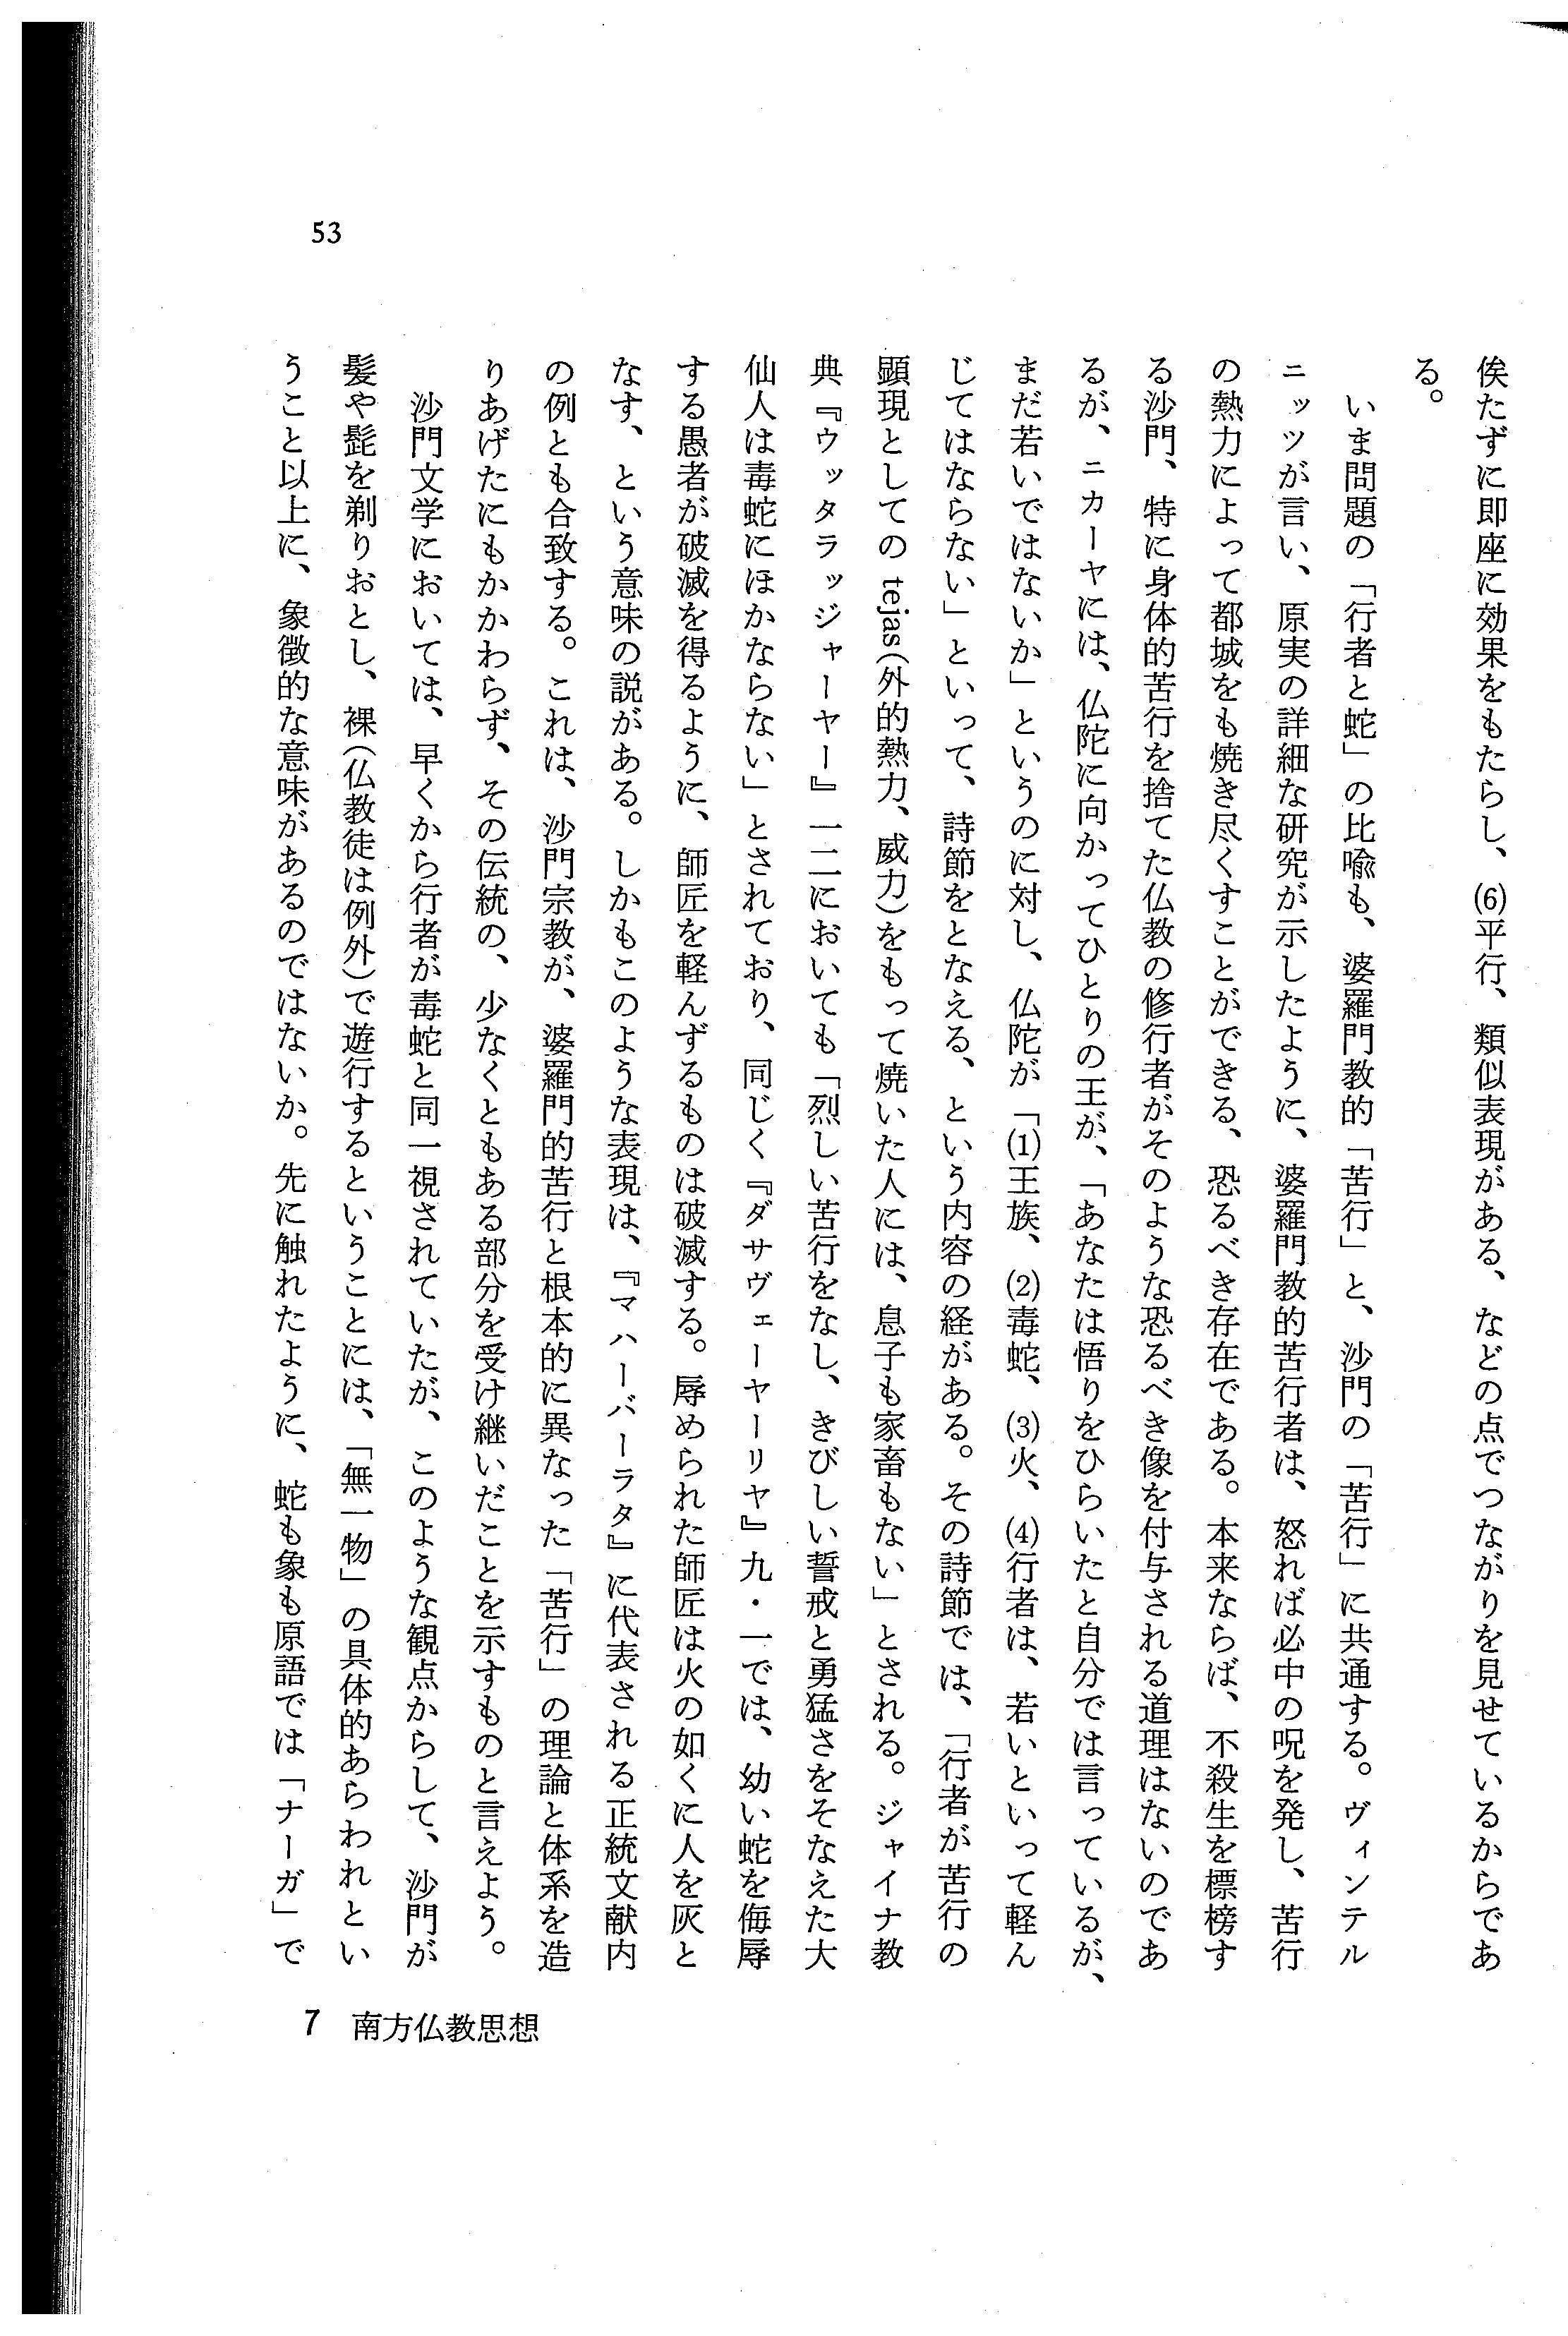 俟たずに即座に効果をもたらし、(6)平行、類似表現がある、などの点でつながりを見せているからであ
る。
いま問題の「行者と蛇」の比喩も、婆羅門教的「苦行」と、沙門の「苦行」に共通する。ヴィンテル
ニッツが言い、原実の詳細な研究が示したように、婆羅門教的苦行者は、怒れば必中の呪を発し、苦行
の熱力によって都城をも焼き尽くすことができる、恐るべき存在である。本来ならば、不殺生を標榜す
る沙門、特に身体的苦行を捨てた仏教の修行者がそのような恐るべき像を付与される道理はないのであ
るが、ニカーヤには、仏陀に向かってひとりの王が、「あなたは悟りをひらいたと自分では言っているが、
まだ若いではないか」というのに対し、仏陀が「(1)王族、(2)毒蛇、(3)火、(4)行者は、若いといって軽ん
じてはならない」といって、詩節をとなえる、という内容の経がある。その詩節では、「行者が苦行の
顕現としての tejas(外的熱力、威力)をもって焼いた人には、息子も家畜もない」とされる。ジャイナ教
典『ウッタラッジャーヤー』一二においても「烈しい苦行をなし、きびしい誓戒と勇猛さをそなえた大
仙人は毒蛇にほかならない」とされており、同じく『ダサヴェーヤーリヤ』九・一では、幼い蛇を侮辱
する愚者が破滅を得るように、師匠を軽んずるものは破滅する。辱められた師匠は火の如くに人を灰と
なす、という意味の説がある。しかもこのような表現は、『マハーバーラタ』に代表される正統文献内
の例とも合致する。これは、沙門宗教が、婆羅門的苦行と根本的に異なった「苦行」の理論と体系を造
りあげたにもかかわらず、その伝統の、少なくともある部分を受け継いだことを示すものと言えよう。
沙門文学においては、早くから行者が毒蛇と同一視されていたが、このような観点からして、沙門が
髪や髭を剃りおとし、裸(仏教徒は例外)で遊行するということには、「無一物」の具体的あらわれとい
うこと以上に、象徴的な意味があるのではないか。先に触れたように、蛇も象も原語では「ナーガ」で
53
7 南方仏教思想